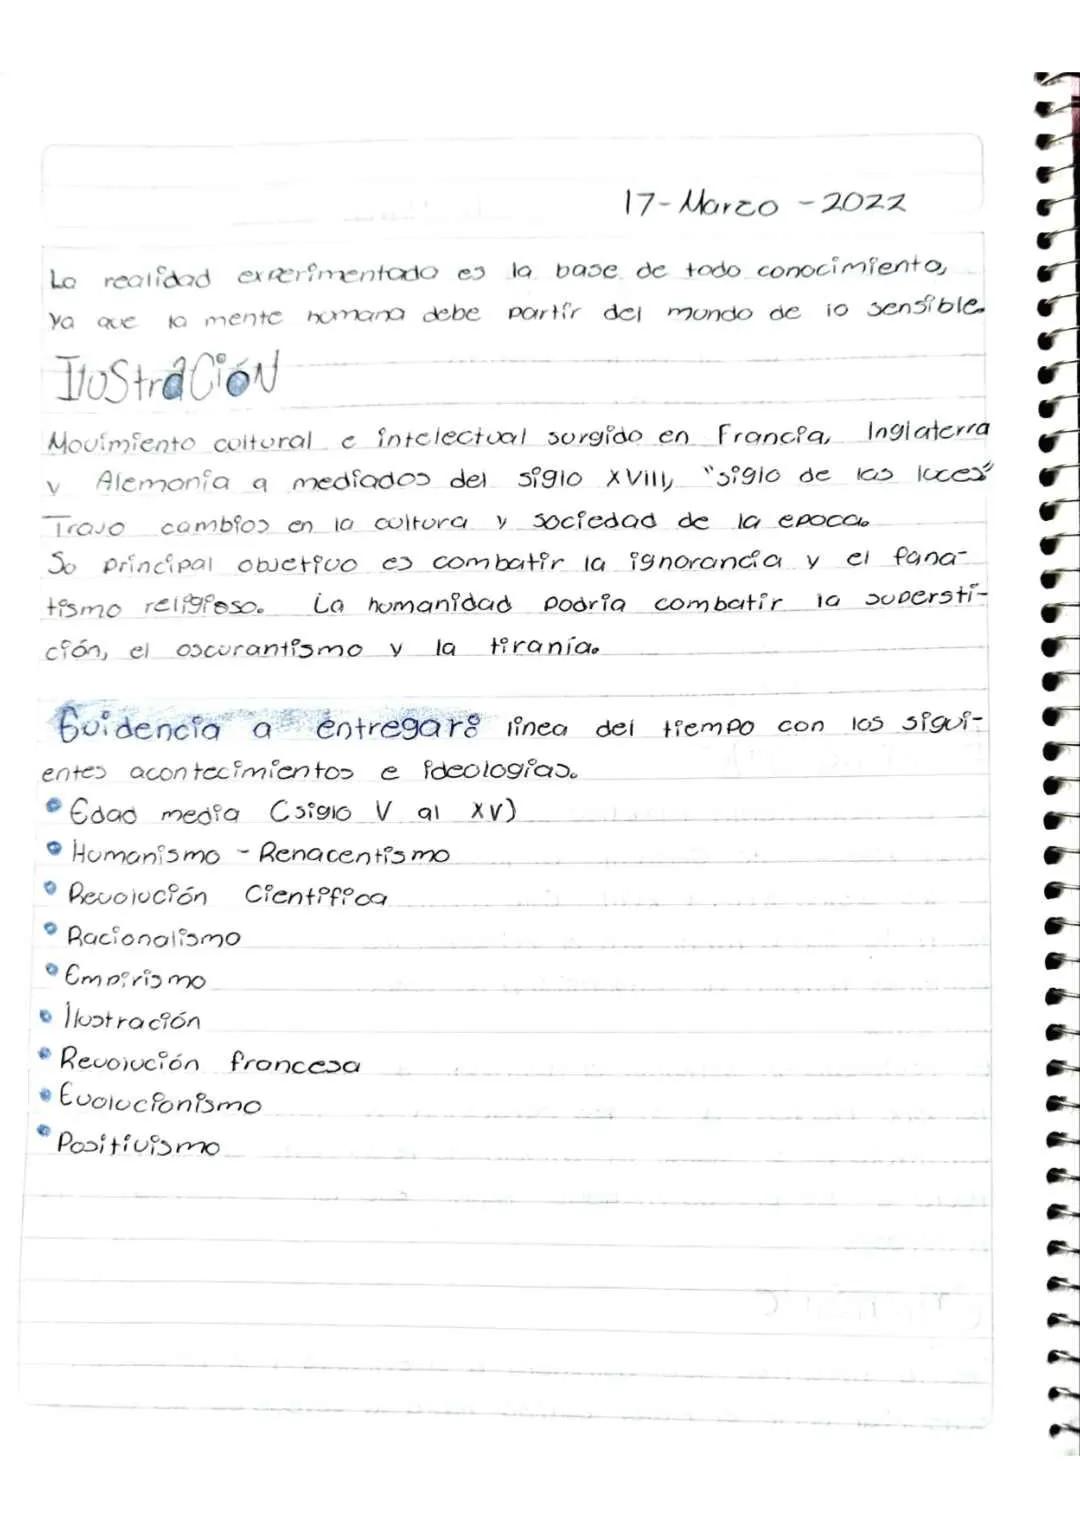 17-Marzo-2022
La realidad experimentada es la base de todo conocimiento,
ya que la mente humana debe partir del mundo de lo sensible.
Ilustración
Movimiento cultural e intelectual surgido en Francia, Inglaterra
y Alemania a mediados del siglo XVIII, "siglo de las luces"
Trajo cambios en la cultura y sociedad de la epoca.
Su principal objetivo es combatir la ignorancia y el fana-
tismo religioso. La humanidad podria combatir la supersti-
ción, el oscurantismo y la tiranía.
Evidencia a entregar: linea del tiempo con los sigui-
entes acontecimientos e ideologías.
• Edad media (siglo V al XV)
• Humanismo - Renacentismo
• Revolución Científica
• Racionalismo
• Empirismo
• Ilustración
• Revolución francesa
• Evolucionismo
• Positivismo